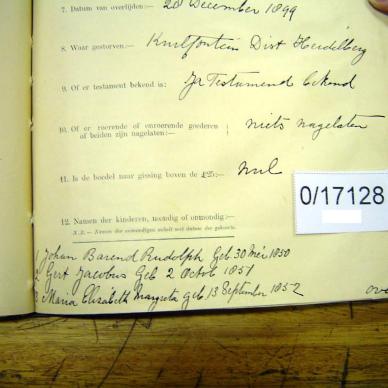 7. Datum van overlijden:— 20 December 1899
8. Waar gestorven.— Knilfontein Dist Heidelberg
9. Of er testament bekend is: Ja Testamend bekend
10. Of er roerende of onroerende goederen of beiden zijn nagelaten:— niets nagelaten
11. Is de boedel naar gissing boven de £25:— nul
0/17128
12. Namen der kinderen, mondig of onmondig:—
N.B.— Namen der onmondigen enkelt met datums der geboorte.
1 Johan Barend Rudolph Geb 30 Mei 1850
2 Gert Jacobus Geb 2 Octob 1851
3 Maria Elizabeth Margreta geb. 13 September 1852
ov